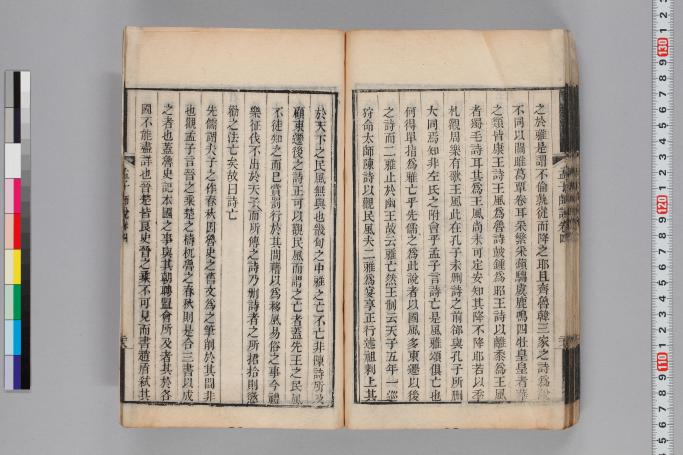 之於雅是謂不倫孰從而降之耶且齊魯韓三家之詩爲說
不同以關雎葛覃卷耳采蘩采蘋騶虞鹿鳴四牡皇皇者華
之類皆康王詩王風爲魯詩鼓鍾爲昭王詩以離黍爲王風
者獨毛詩耳其爲王風尚未可定安知其降不降耶若以季
札觀周樂有歌王風此在孔子未刪詩之前卻與孔子所刪
大同焉知非左氏之附會乎孟子言詩亡是風雅頌俱亡也
何得單指爲雅亡乎先儒之爲此說者以國風多東遷以後
之詩而二雅止於幽王故云雅亡然王制云天子五年一巡
狩命太師陳詩以觀民風夫二雅爲宴享正行述祖刺上其
於天下之民風無與也畿甸之中雅之亡不亡非陳詩所及
顧東遷後之詩正可以觀民風而謂之亡者蓋先王之民風
不徒知之而已賞罰行於其間藉以爲移風易俗之事今禮
樂征伐不出於天子而所傳之詩乃刪詩者之所捃拾則慫
勸之法亡矣故曰詩亡
先儒謂夫子之作春秋因魯史之舊文爲之筆削於其間非
也觀孟子言晉之乘楚之檮杌魯之春秋則是合三書以成
之者也蓋魯史記本國之事與其朝聘盟會所及者其於各
國不能盡詳也晉楚皆良史晉之乘不可見而書趙盾弒其
孟子師說卷四